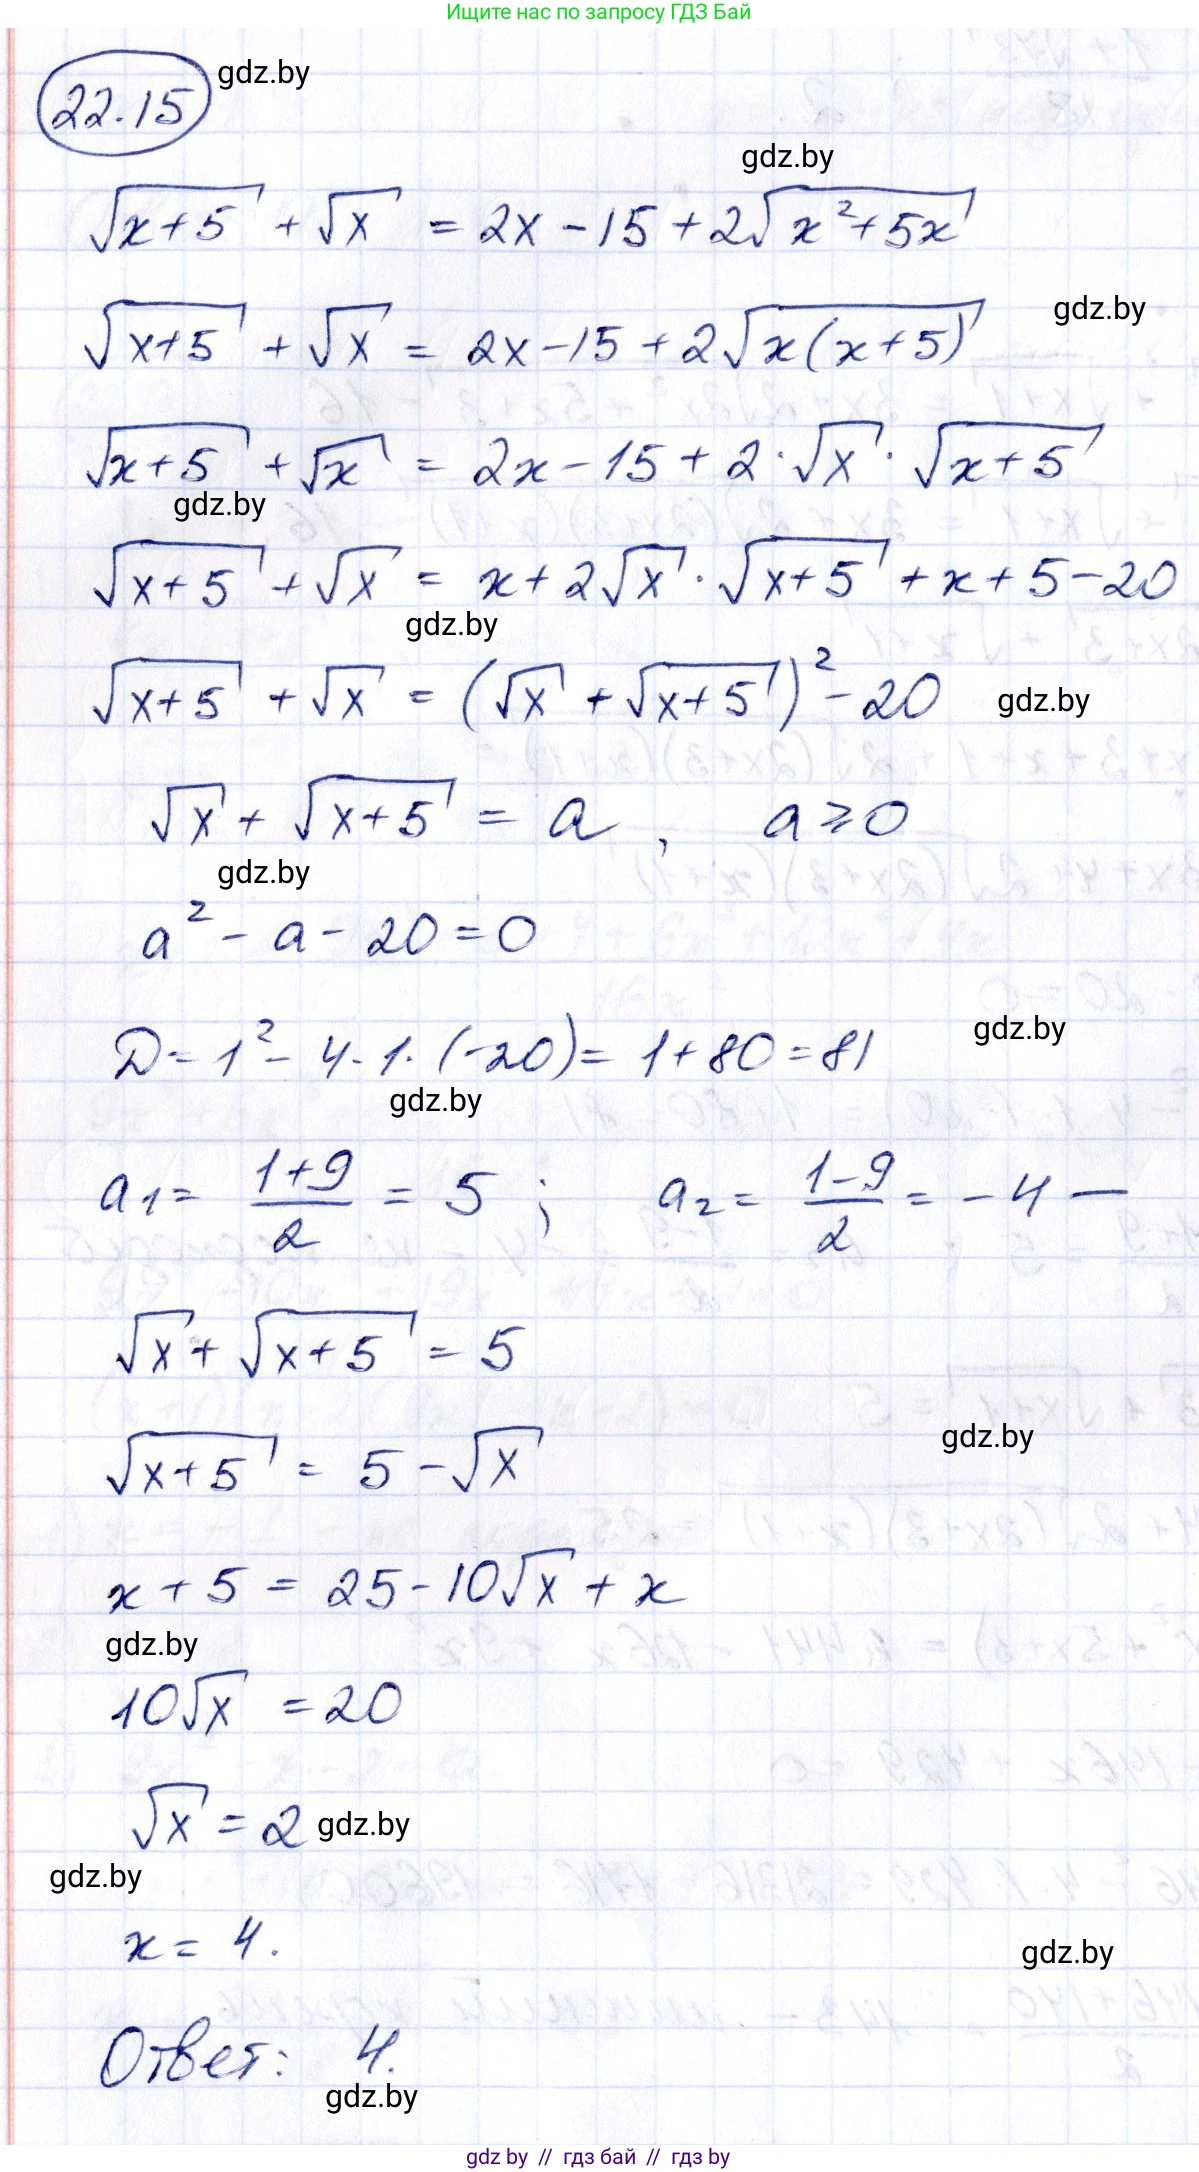 Ищите нас по запросу ГДЗ Бай
22.15 gdz.by
gdz.by
√(x+5) + √x = 2x - 15 + 2√(x²+5x)
gdz.by
√(x+5) + √x = 2x - 15 + 2√(x(x+5))
√(x+5) + √x = 2x - 15 + 2·√x·√(x+5)
gdz.by
√(x+5) + √x = x + 2√x·√(x+5) + x + 5 - 20
gdz.by
√(x+5) + √x = (√x + √(x+5))² - 20 gdz.by
√x + √(x+5) = a, a ⩾ 0
gdz.by
a² - a - 20 = 0
gdz.by
D = 1² - 4·1·(-20) = 1 + 80 = 81
gdz.by
a₁ = (1+9)/2 = 5; a₂ = (1-9)/2 = -4 —
√x + √(x+5) = 5
gdz.by
√(x+5) = 5 - √x
x + 5 = 25 - 10√x + x
gdz.by
10√x = 20
√x = 2 gdz.by
gdz.by
x = 4.
gdz.by
Ответ: 4.
gdz.by
gdz by // гдз бай // гдз by